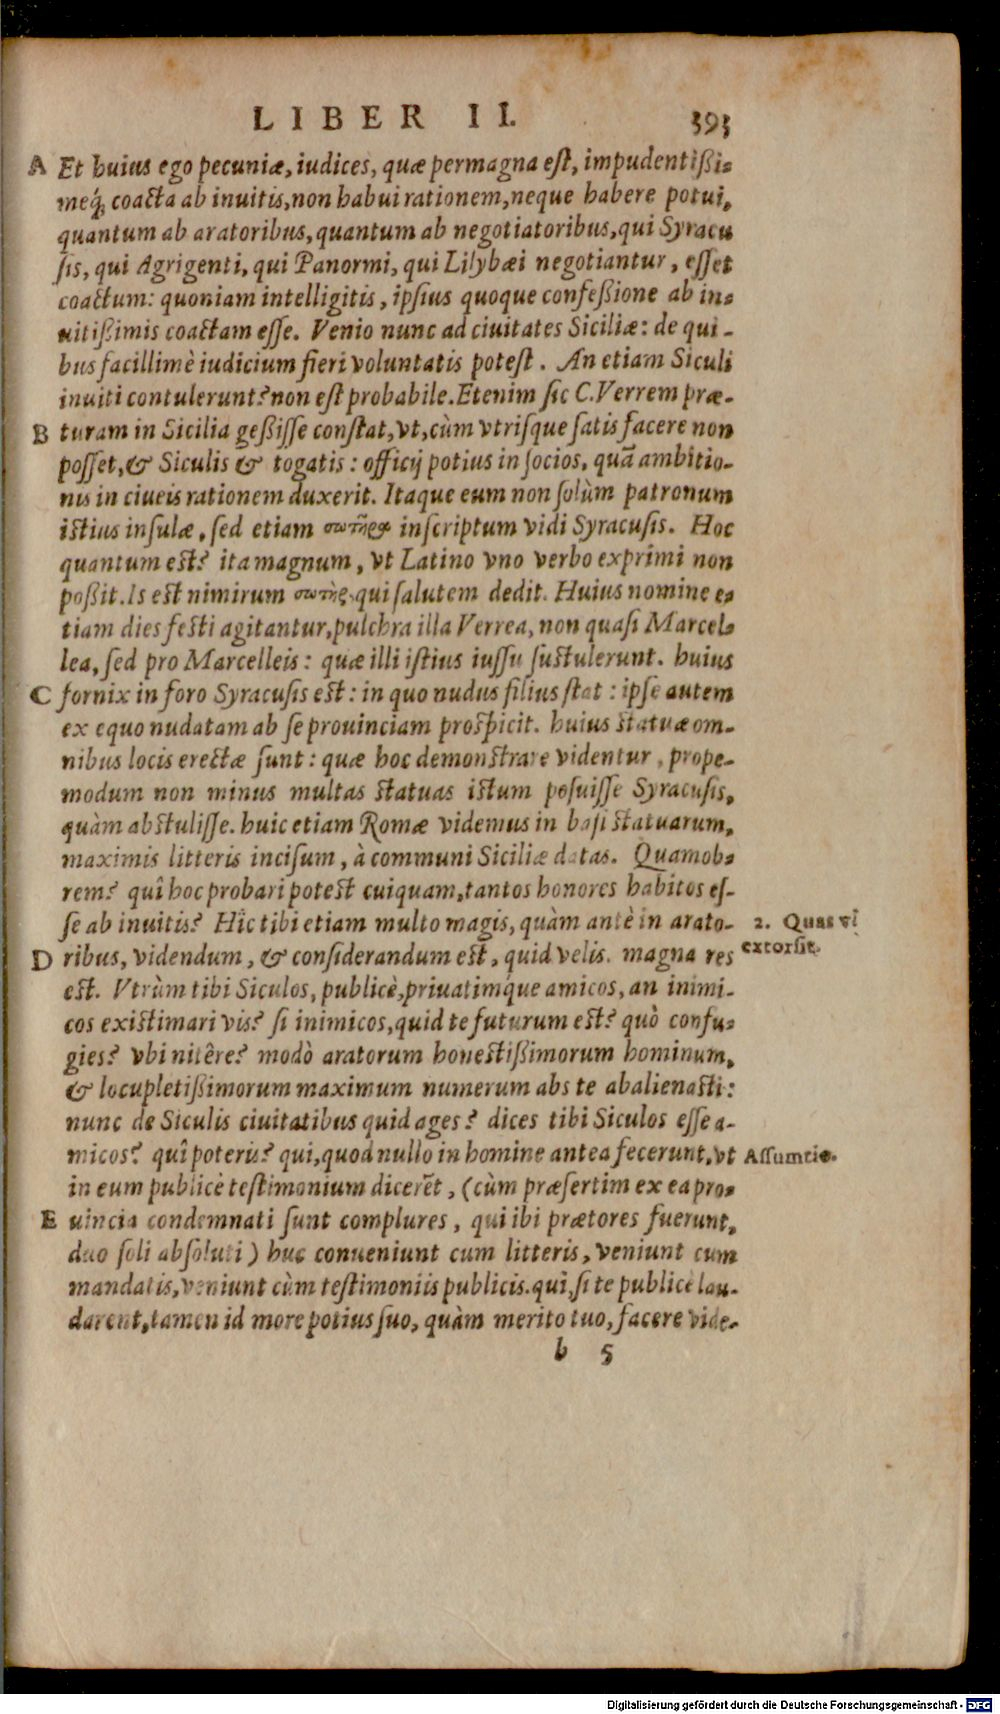 LIBER II. 393
A Et huius ego pecuniæ, iudices, quæ permagna est, impudentißi-
meq́; coacta ab inuitis, non habui rationem, neque habere potui,
quantum ab aratoribus, quantum ab negotiatoribus, qui Syracu
sis, qui Agrigenti, qui Panormi, qui Lilybæi negotiantur, esset
coactum: quoniam intelligitis, ipsius quoque confeßione ab in-
uitißimis coactam esse. Venio nunc ad ciuitates Siciliæ: de qui-
bus facillimè iudicium fieri voluntatis potest. An etiam Siculi
inuiti contulerunt? non est probabile. Etenim sic C. Verrem præ-
B turam in Sicilia geßisse constat, vt, cùm vtrisque satis facere non
posset, & Siculis & togatis: officij potius in socios, quã ambitio-
nis in ciueis rationem duxerit. Itaque eum non solùm patronum
istius insulæ, sed etiam σωτῆρα inscriptum vidi Syracusis. Hoc
quantum est? ita magnum, vt Latino vno verbo exprimi non
poßit. Is est nimirum σωτὴρ, qui salutem dedit. Huius nomine e-
tiam dies festi agitantur, pulchra illa Verrea, non quasi Marcel-
lea, sed pro Marcelleis: quæ illi istius iussu sustulerunt. huius
C fornix in foro Syracusis est: in quo nudus filius stat: ipse autem
ex equo nudatam ab se prouinciam prospicit. huius statuæ om-
nibus locis erectæ sunt: quæ hoc demonstrare videntur, prope-
modum non minus multas statuas istum posuisse Syracusis,
quàm abstulisse. huic etiam Romæ videmus in basi statuarum,
maximis litteris incisum, à communi Siciliæ datas. Quamob-
rem? quî hoc probari potest cuiquam, tantos honores habitos es-
se ab inuitis? Hîc tibi etiam multo magis, quàm antè in arato-
2. Quas vi
extorsit.
D ribus, videndum, & considerandum est, quid velis. magna res
est. Vtrùm tibi Siculos, publicè, priuatimq́ue amicos, an inimi-
cos existimari vis? si inimicos, quid te futurum est? quò confu-
gies? vbi nitêre? modò aratorum honestißimorum hominum,
& locupletißimorum maximum numerum abs te abalienasti:
nunc de Siculis ciuitatibus quid ages? dices tibi Siculos esse a-
micos? quî poteris? qui, quod nullo in homine antea fecerunt, vt
Assumtio.
in eum publicè testimonium dicerẽt, (cùm præsertim ex ea pro-
E uincia condemnati sunt complures, qui ibi prætores fuerunt,
duo soli absoluti) huc conueniunt cum litteris, veniunt cum
mandatis, veniunt cùm testimoniis publicis. qui, si te publicè lau-
darent, tamen id more potius suo, quàm merito tuo, facere vide-
b 5
Digitalisierung gefördert durch die Deutsche Forschungsgemeinschaft - DFG